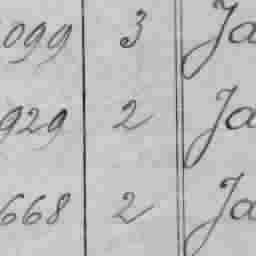 099 3 Ja
929 2 Ja
668 2 Ja